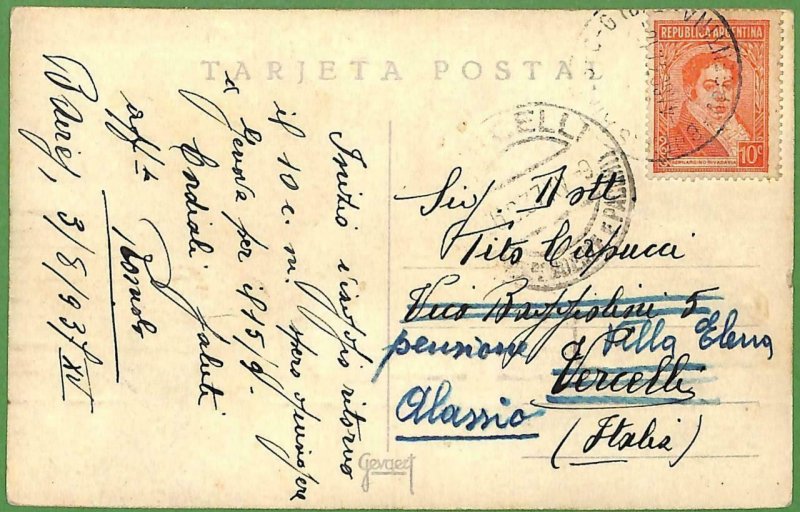 TARJETA POSTAL
REPUBLICA ARGENTINA
10c
BERNARDINO RIVADAVIA
Inizio viaggio ritorno
il 10 c. m. spero giungere
a Genova per il 15/9.
Cordiali saluti
aff.
Romolo
Baires, 3/8/937 XV
Sig. Dott
Tito Capucci
Vico Baggiolini 5
Vercelli
(Italia)
pensione Villa Elena
Alassio
Gevaert